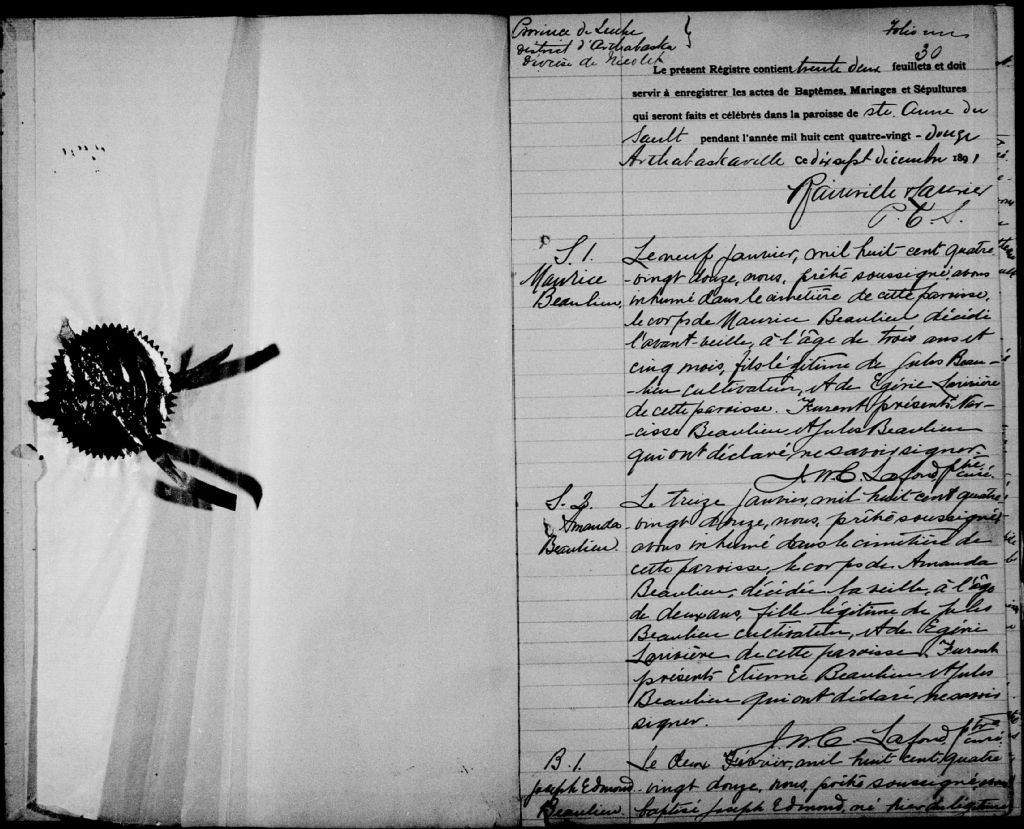 Province de Quebec
district d'Arthabaska
Diocèse de Nicolet
Folio un
30
Le présent Régistre contient trente deux feuillets et doit
servir à enregistrer les actes de Baptêmes, Mariages et Sépultures
qui seront faits et célébrés dans la paroisse de Ste. Anne du
Sault pendant l'année mil huit cent quatre-vingt - douze
Arthabaskaville ce dix sept décembre 1891
Rainville & Laurier
P. C. S.
S. 1.
Maurice
Beaulieu.
Le neuf Janvier, mil huit cent quatre
-vingt douze, nous, prêtre soussigné, avons
inhumé dans le cimetière de cette paroisse,
le corps de Maurice Beaulieu décédé
l'avant-veille, à l'âge de trois ans et
cinq mois, fils légitime de Jules Beau-
-lieu cultivateur, et de Egérie Larivière
de cette paroisse. Furent présents Nar-
-cisse Beaulieu et Jules Beaulieu
qui ont déclaré ne savoir signer.
J. W. C. Laford ptre curé.
S. 2.
Amanda
Beaulieu.
Le treize Janvier, mil huit cent quatre
-vingt douze, nous, prêtre soussigné,
avons inhumé dans le cimetière de
cette paroisse, le corps de Amanda
Beaulieu, décédée la veille, à l'âge
de deux ans, fille légitime de Jules
Beaulieu cultivateur, et de Egérie
Larivière de cette paroisse. Furent
présents Etienne Beaulieu et Jules
Beaulieu qui ont déclaré ne savoir
signer.
J. W. C. Laford, ptre curé.
B. 1.
Joseph Edmond
Beaulieu
Le deux Février, mil huit cent quatre
-vingt douze, nous, prêtre soussigné, avons
baptisé Joseph Edmond, né hier du légitime